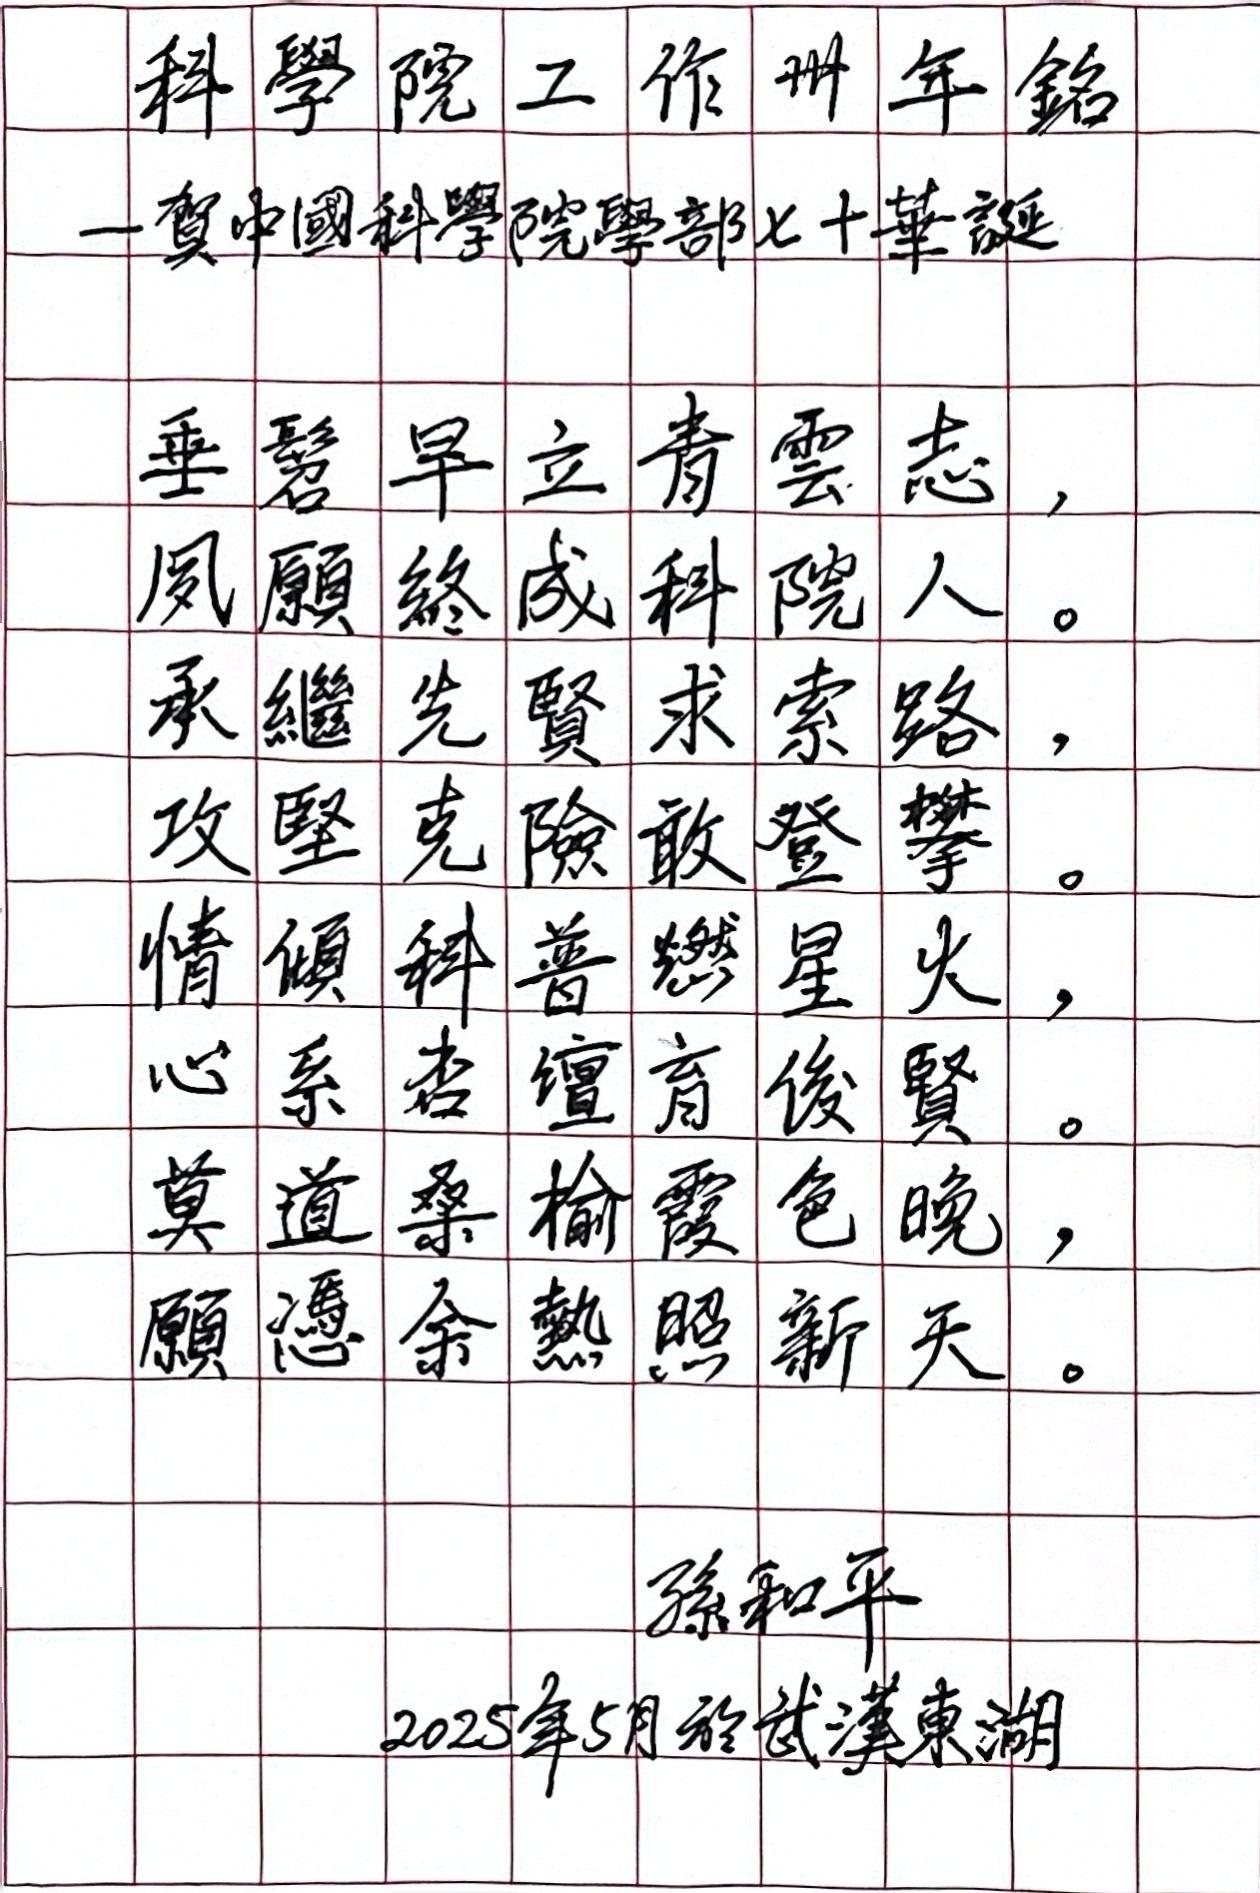 科學院工作卅年銘
—賀中國科學院學部七十華誕
垂髫早立青雲志，
夙願終成科院人。
承繼先賢求索路，
攻堅克險敢登攀。
情傾科普燃星火，
心系杏壇育後賢。
莫道桑榆霞色晚，
願憑余熱照新天。
孫和平
2025年5月於武漢東湖